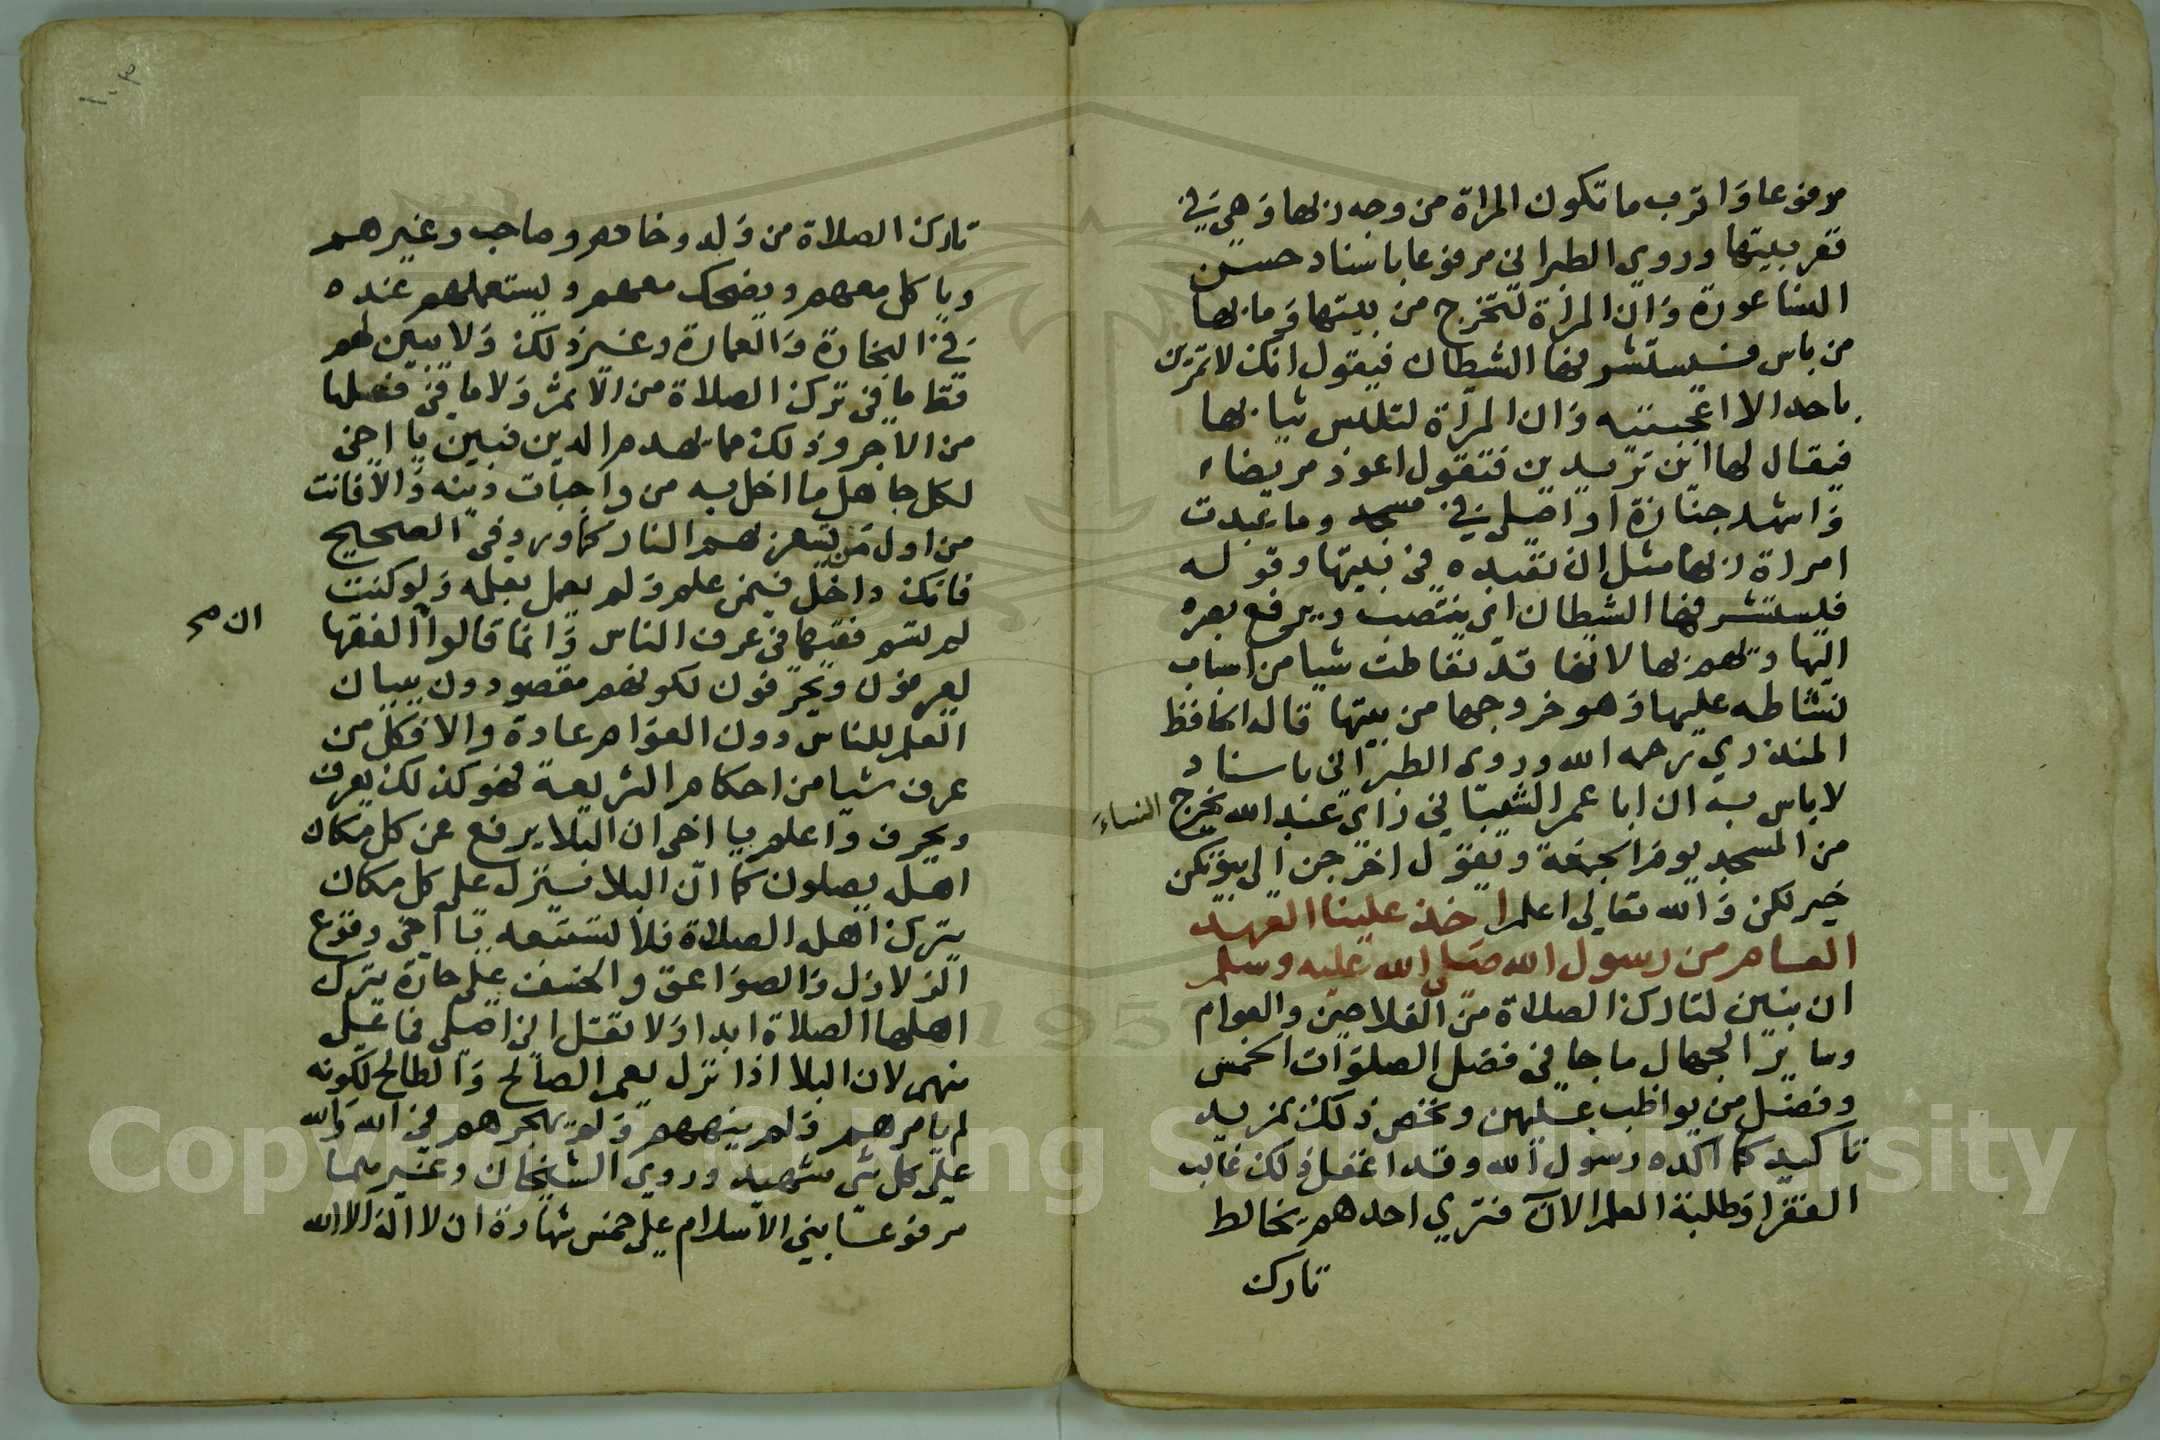 مرفوعا واقرب ما تكون المراة من وجه ربها وهي في
قعر بيتها وروي الطبراني مرفوعا باسناد حسن
النسا عورة وان المراة لتخرج من بيتها وما بها
من باس فيستشرفها الشيطان فيقول انك لا تمرين
باحد الا اعجبتيه وان المراة لتلبس ثيابها
فيقال لها اين تريدين فتقول اعوذ مريضا
واشهد جنازة او اصلي في مسجد وما عبدت
امراة ربها مثل ان تعبده في بيتها وقوله
فيستشرفها الشيطان اي ينتصب ويرفع بصره
اليها ويهم بها لانها قد تعاطت شيا من اسباب
تسلطه عليها وهو خروجها من بيتها قاله الحافظ
المنذري رحمه الله وروي الطبراني باسناد
لا باس به ان ابا عمر الشيباني راي عبد الله يخرج النساء
من المسجد يوم الجمعة ويقول اخرجن الي بيوتكن
خير لكن والله تعالي اعلم اخذ علينا العهد
العام من رسول الله صلي الله عليه وسلم
ان نبين لتارك الصلاة من الفلاحين والعوام
وساير الجهال ما جا في فضل الصلوات الخمس
وفضل من يواظب عليهن ونخص ذلك بمزيد
تاكيد كما اكده رسول الله وقد اغفل ذلك غالب
الفقرا وطلبة العلم الان فتري احدهم يخالط
تارك
١٠٣
تارك الصلاة من ولد وخادم وصاحب وغيرهم
وياكل معهم ويضحك معهم ويستعملهم عنده
في التجارة والعمارة وغير ذلك ولا يبين لهم
قط ما في ترك الصلاة من الاثم ولا ما في فعلها
من الاجر وذلك مما يهدم الدين فبين يا اخي
لكل جاهل ما اخل به من واجبات دينه والا فانت
من اول من تسعر بهم النار كما ورد في الصحيح
فانك داخل فيمن علم ولم يعمل بعلمه ولو كنت
لم تسم فقيها في عرف الناس وانما قالوا الفقها
ان صح
يعرفون ويحرفون لكونهم مقصودون ببيان
العلم للناس دون العوام عادة والا فكل من
عرف شيا من احكام الشريعة فهو كذلك يعرف
ويحرف واعلم يا اخي ان البلا يرفع عن كل مكان
اهله يصلون كما ان البلا ينزل علي كل مكان
يترك اهله الصلاة فلا تستبعد يا اخي وقوع
الزلازل والصواعق والخسف علي حارة يترك
اهلها الصلاة ابدا ولا تقل اني اصلي فما علي
منهم لان البلا اذا نزل يعم الصالح والطالح لكونه
لم يامرهم ولم ينههم ولم يهجرهم في الله والله
علي كل شي شهيد وروي الشيخان وغيرهما
مرفوعا بني الاسلام علي خمس شهادة ان لا اله الا الله
Copyright © King Saud University
1957